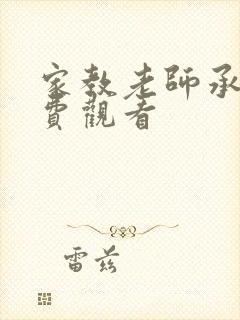 家教老師承
費觀看
雷兹